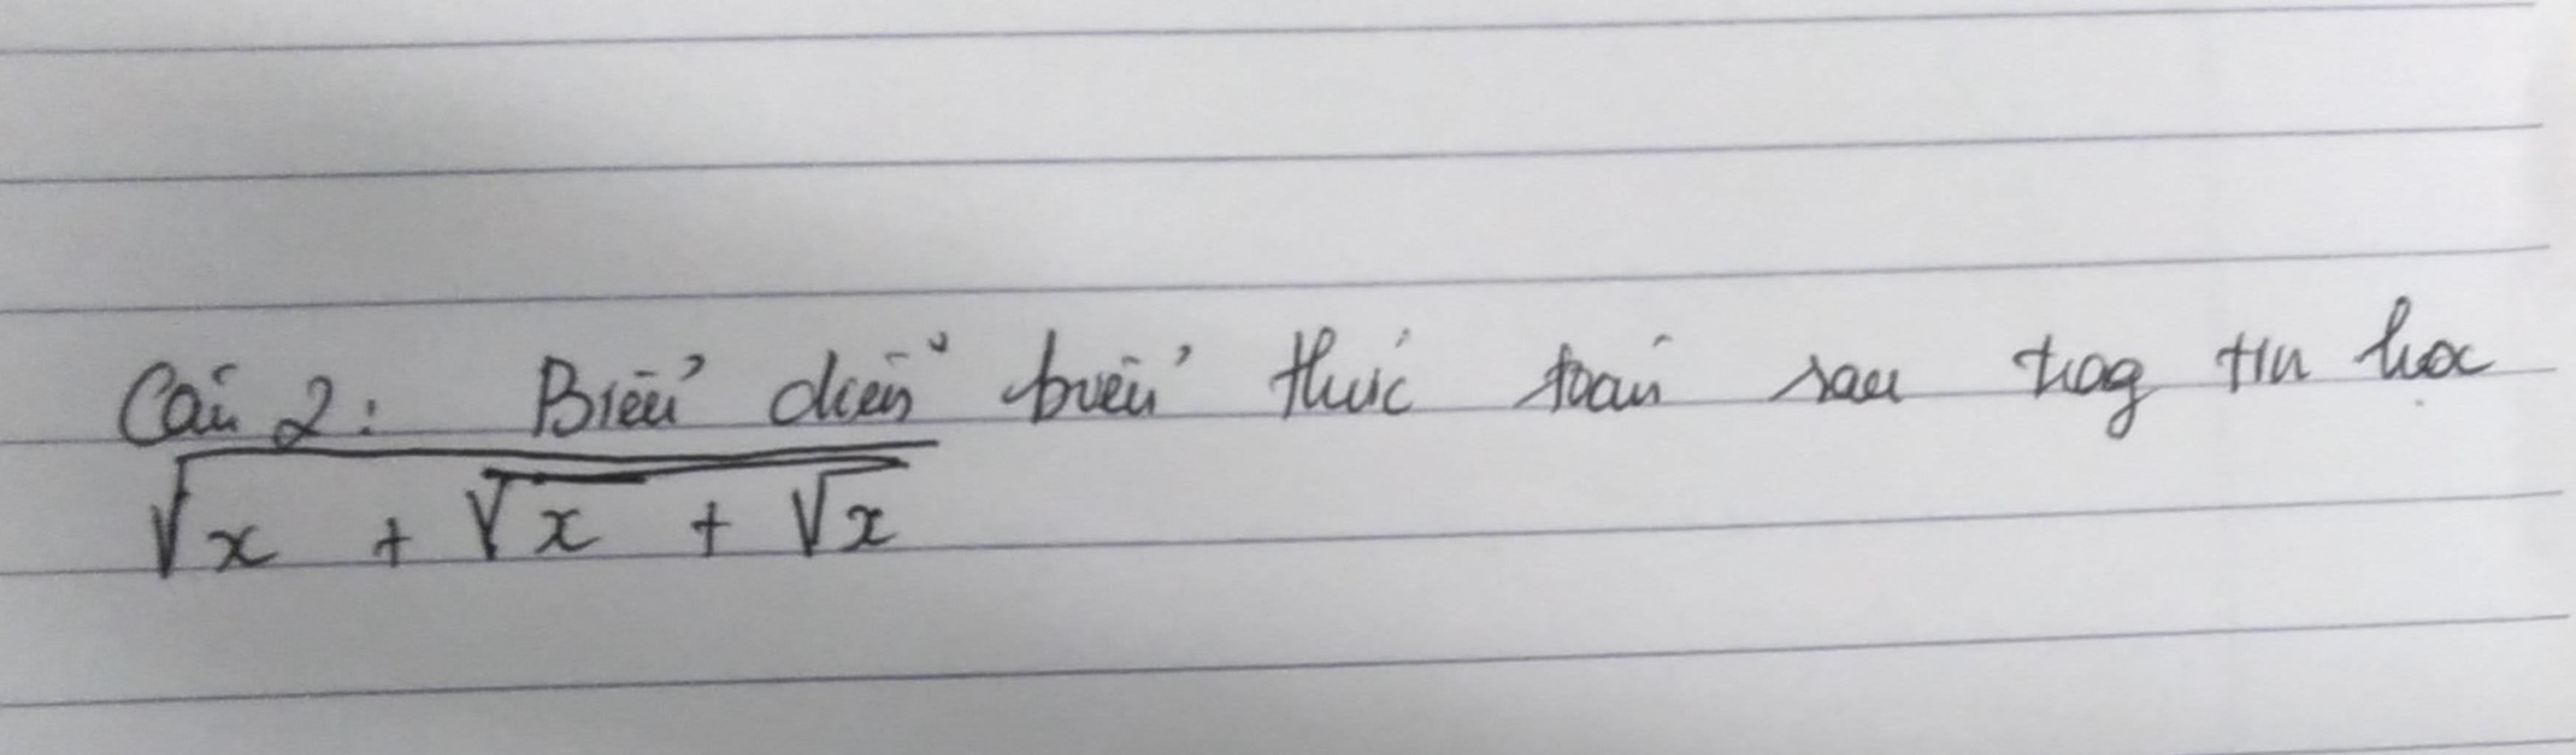 Câu 2: Biểu diễn biểu thức toán sau trog tin học
√(x + √(x + √x))